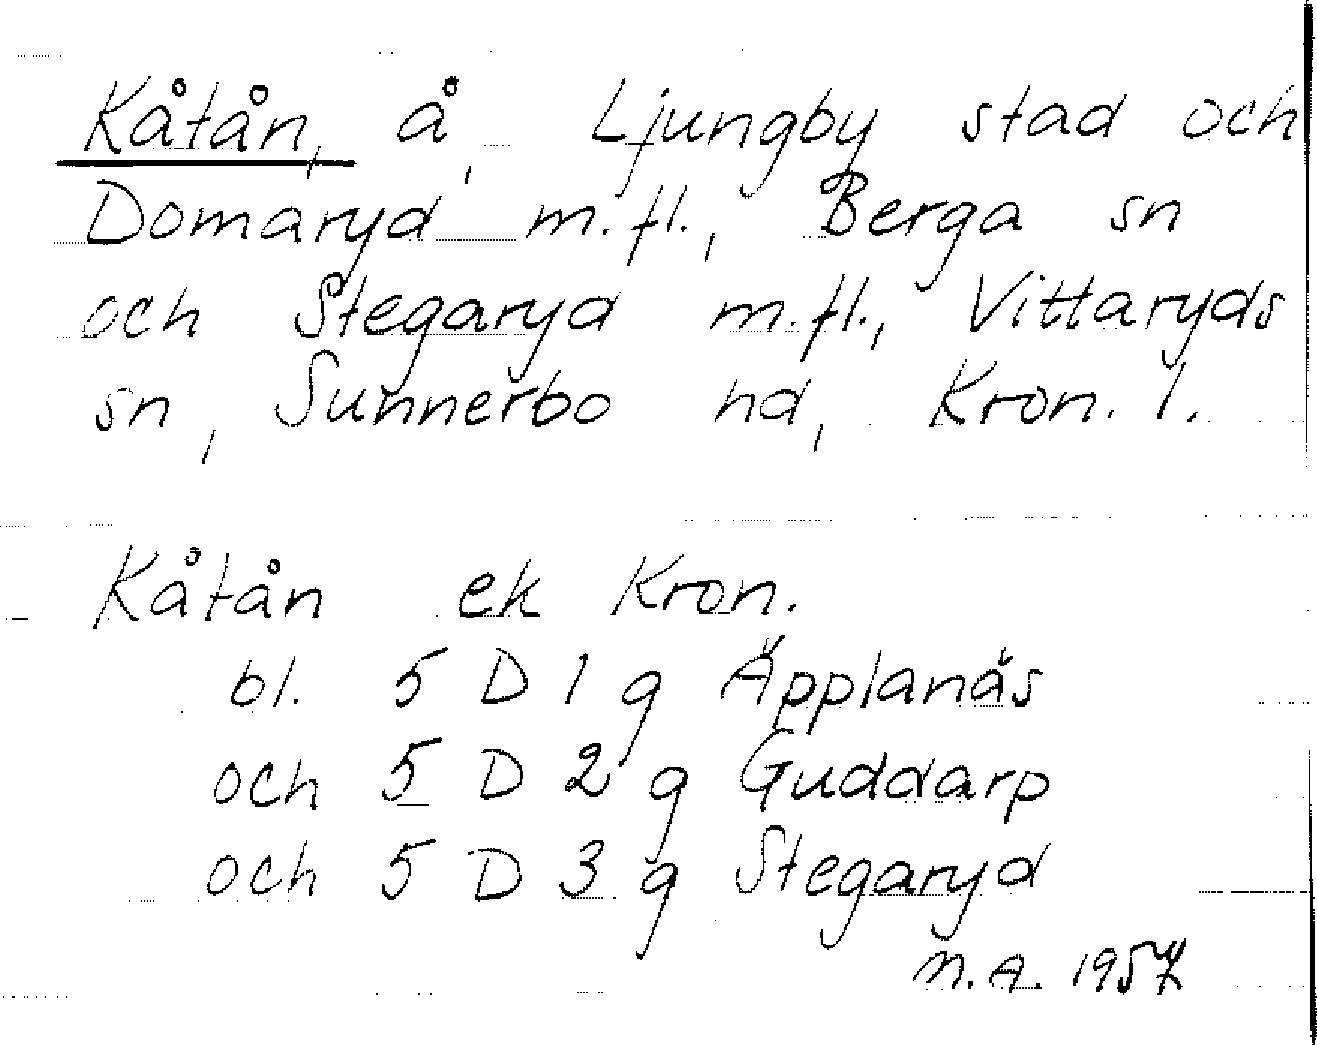 Kåtån, å, Ljungby stad och
Domaryd m.fl., Berga sn
och Stegaryd m.fl., Vittaryds
sn, Sunnerbo hd, Kron. l.
Kåtån ek Kron.
bl. 5 D 1 g Äpplanäs
och 5 D 2 g Guddarp
och 5 D 3 g Stegaryd
N.A. 1957